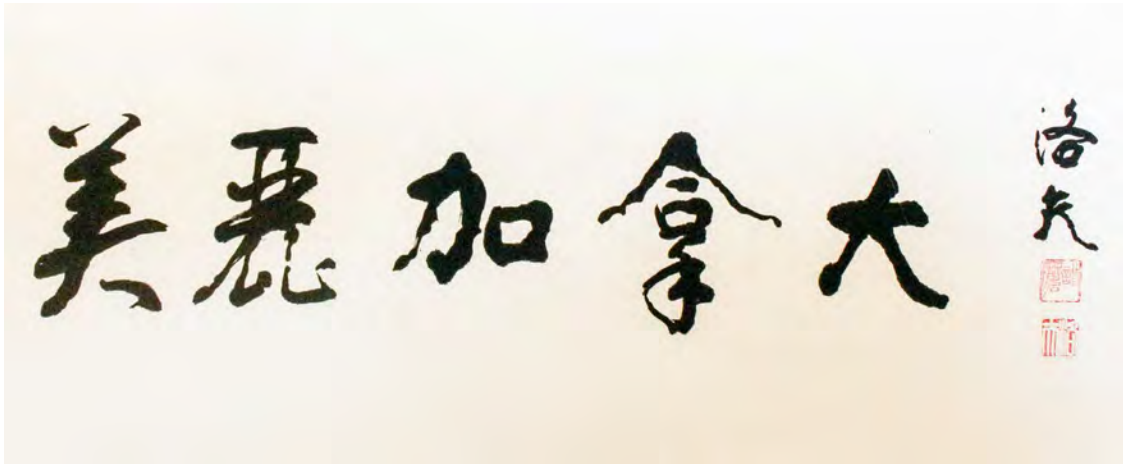 美麗加拿大
洛夫